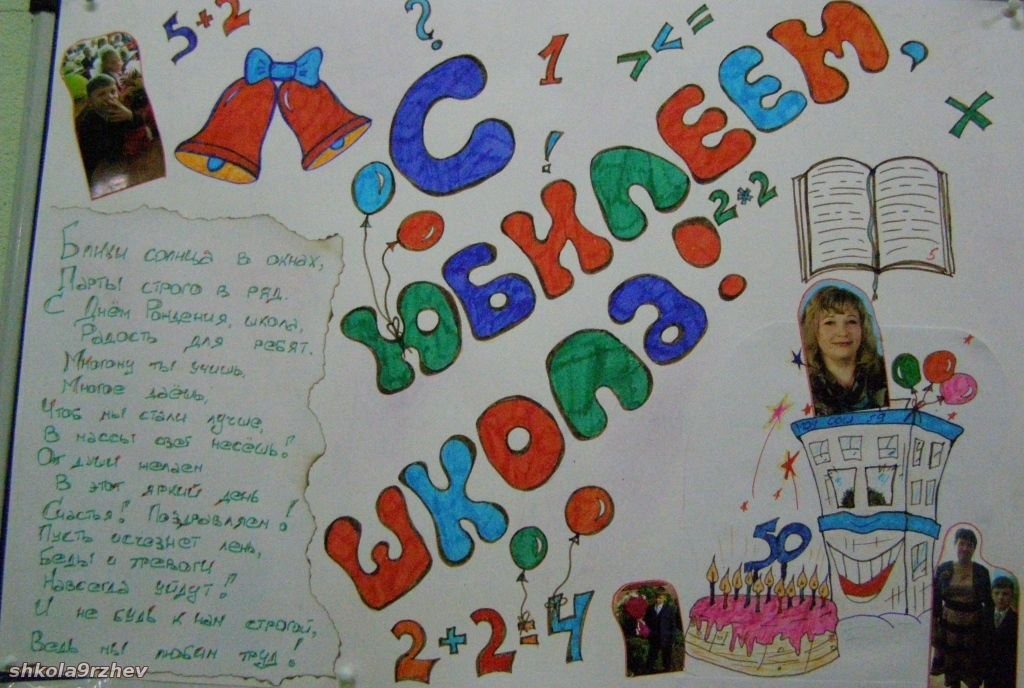 5+2
?
1
> < =
С
ЮБИЛЕЕМ,
!
×
2*2
ШКОЛА!
5
Блики солнца в окнах,
Парты строго в ряд.
С Днём Рождения, школа,
Радость для ребят.
Многому ты учишь,
Многое даёшь,
Чтоб мы стали лучше,
В массы свет несёшь!
От души желаем
В этот яркий день
Счастья! Поздравляем!
Пусть исчезнет лень,
Беды и тревоги
Навсегда уйдут!
И не будь к нам строгой,
Ведь мы любим труд!
МОУ СОШ
50
2+2=4
shkola9rzhev